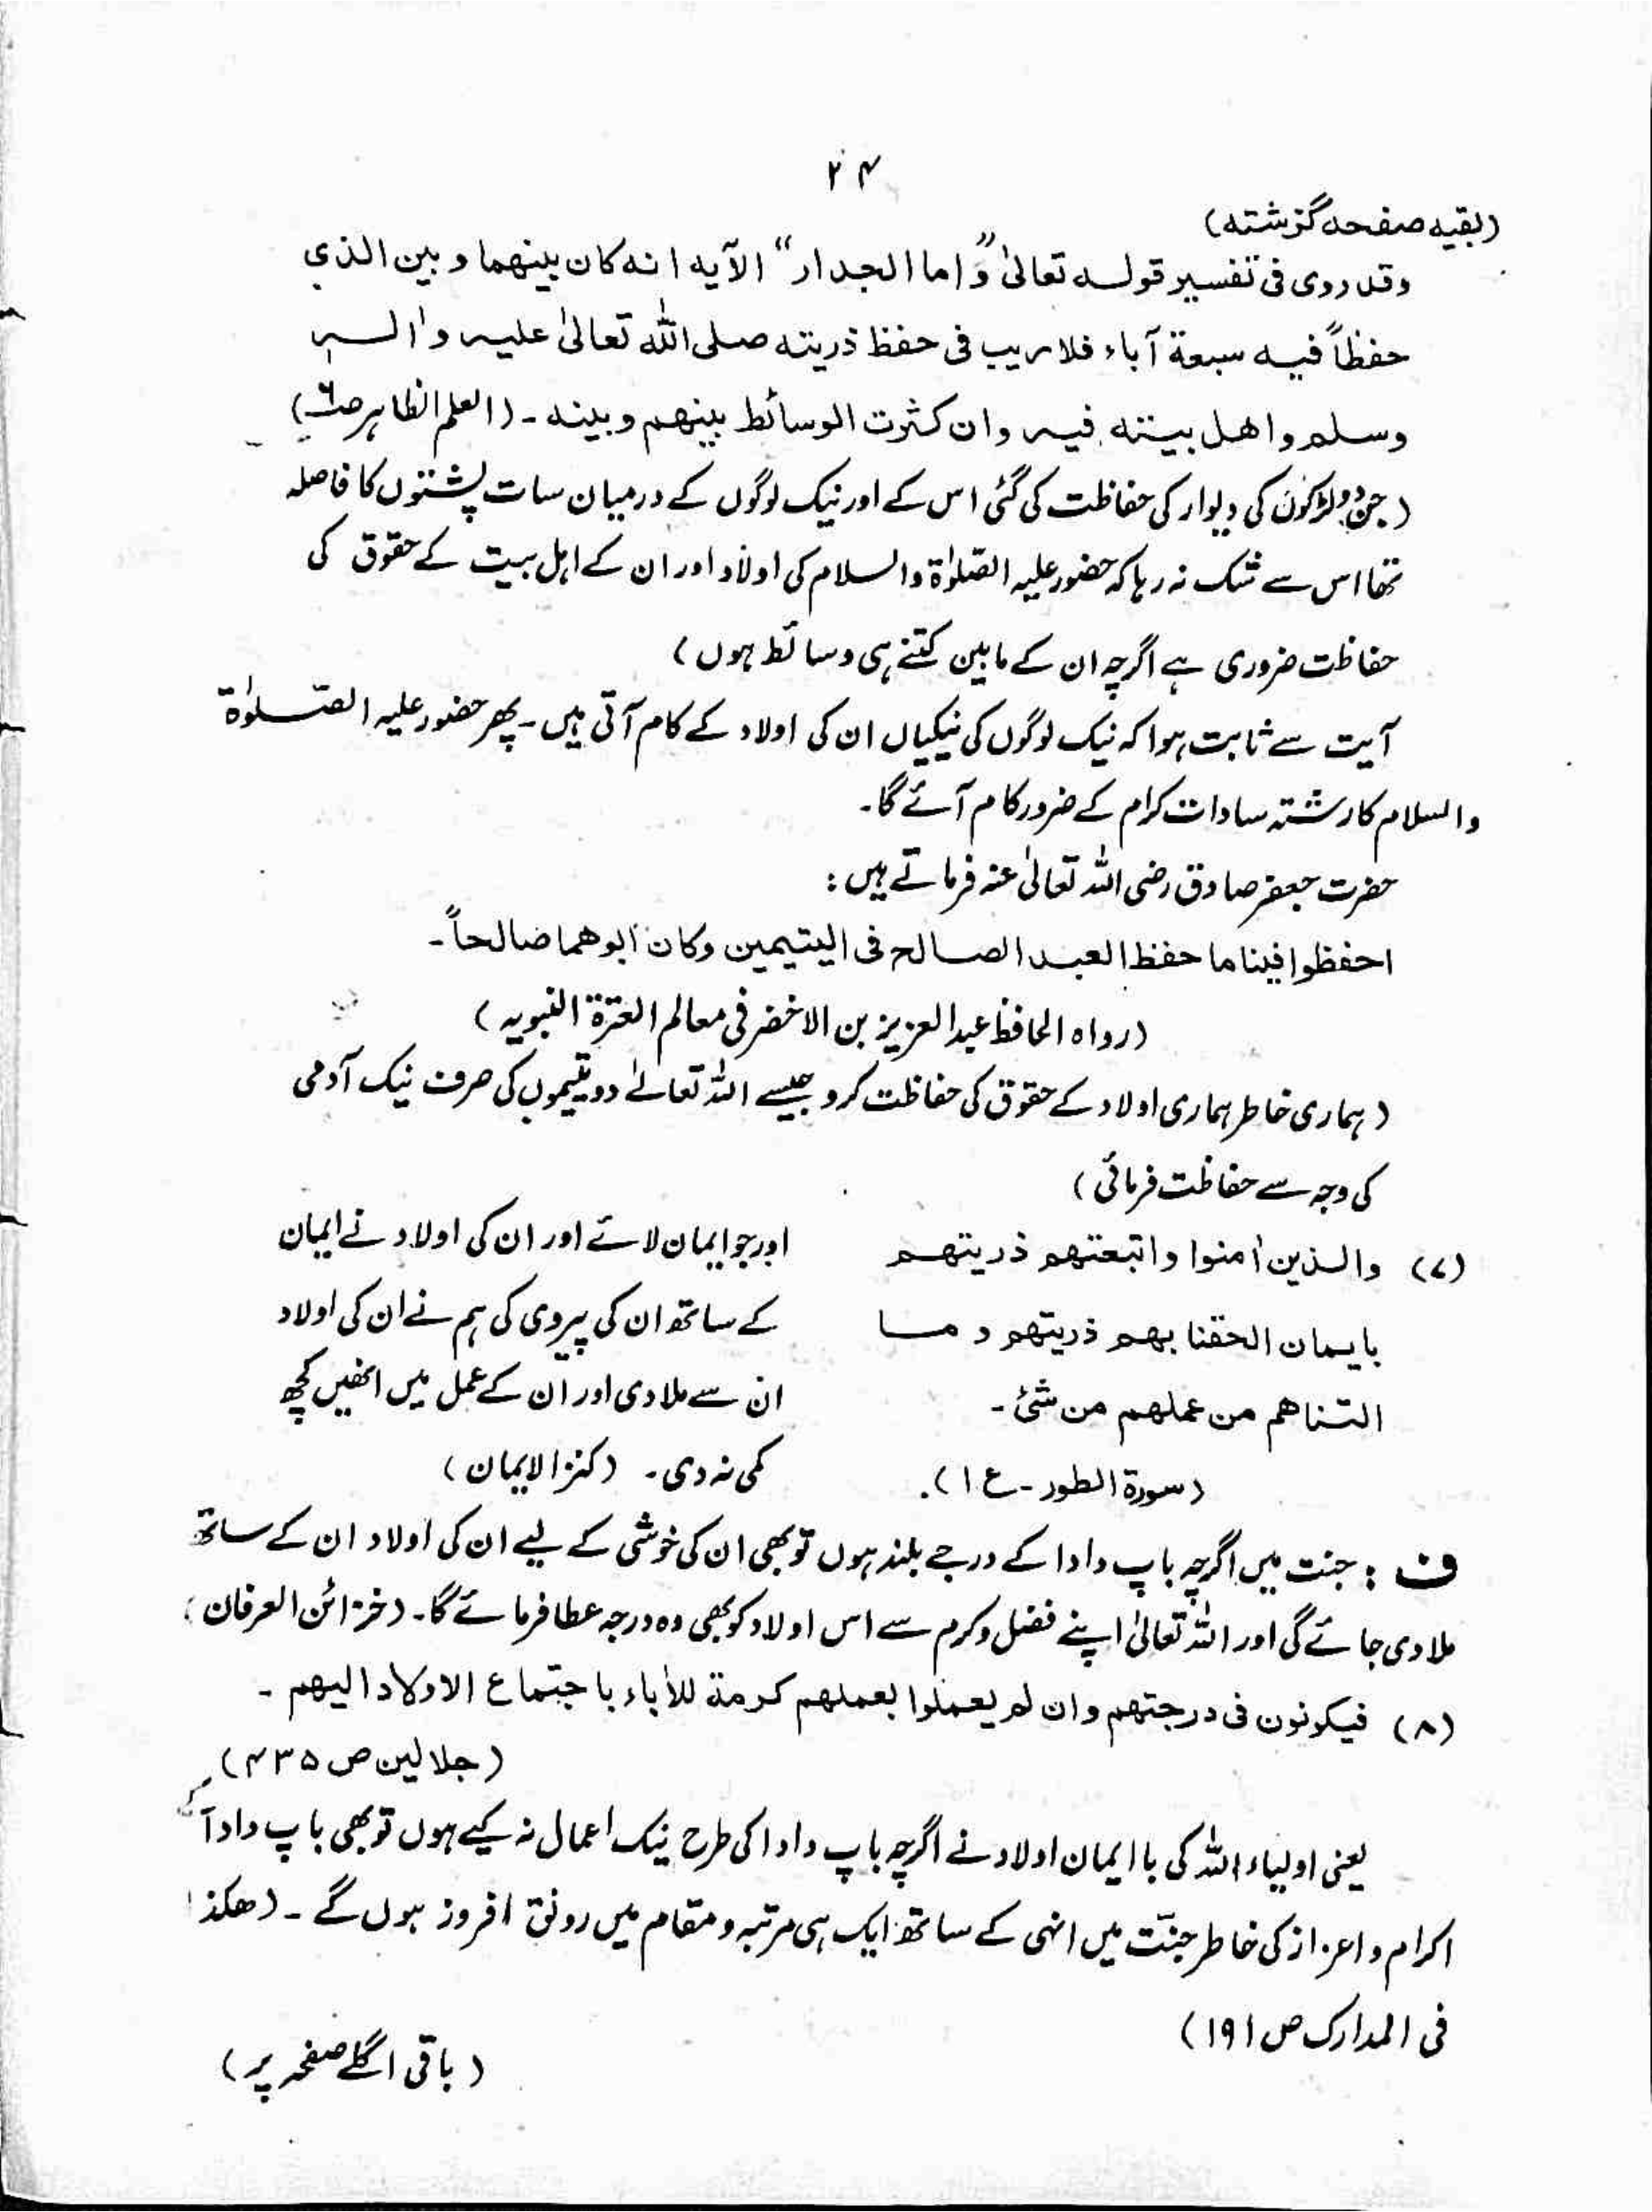 ۲۴
(بقیہ صفحہ گزشتہ)
وقد روی فی تفسیر قولہ تعالیٰ ”واما الجدار“ الآیہ انہ کان بینھما و بین الذی
حفظاً فیہ سبعۃ آباء فلا ریب فی حفظ ذریتہ صلی اللہ تعالیٰ علیہ واٰلہ
وسلم واھل بیتہ فیہ وان کثرت الوسائط بینھم وبینہ ۔ (العلم الظاہر ص۶)
(جن دو لڑکوں کی دیوار کی حفاظت کی گئی اس کے اور نیک لوگوں کے درمیان سات پشتوں کا فاصلہ
تھا اس سے شک نہ رہا کہ حضور علیہ الصلوٰۃ والسلام کی اولاد اور ان کے اہل بیت کے حقوق کی
حفاظت ضروری ہے اگرچہ ان کے مابین کتنے ہی وسائط ہوں)
آیت سے ثابت ہوا کہ نیک لوگوں کی نیکیاں ان کی اولاد کے کام آتی ہیں ۔ پھر حضور علیہ الصّلوٰۃ
والسلام کا رشتہ سادات کرام کے ضرور کام آئے گا ۔
حضرت جعفر صادق رضی اللہ تعالیٰ عنہ فرماتے ہیں :
احفظوا فینا ما حفظ العبد الصالح فی الیتیمین وکان ابوھما صالحاً ۔
(رواہ الحافظ عبدالعزیز بن الاخضر فی معالم العترۃ النبویہ)
(ہماری خاطر ہماری اولاد کے حقوق کی حفاظت کرو جیسے اللہ تعالےٰ دو یتیموں کی صرف نیک آدمی
کی وجہ سے حفاظت فرمائی)
(۷) والذین اٰمنوا واتبعتھم ذریتھم
بایمان الحقنا بھم ذریتھم و ما
التناھم من عملھم من شئ ۔
(سورۃ الطور ۔ ع ۱) ۔
اور جو ایمان لائے اور ان کی اولاد نے ایمان
کے ساتھ ان کی پیروی کی ہم نے ان کی اولاد
ان سے ملا دی اور ان کے عمل میں انھیں کچھ
کمی نہ دی ۔ (کنزالایمان)
ف : جنت میں اگرچہ باپ دادا کے درجے بلند ہوں تو بھی ان کی خوشی کے لیے ان کی اولاد ان کے ساتھ
ملا دی جائے گی اور اللہ تعالیٰ اپنے فضل وکرم سے اس اولاد کو بھی وہ درجہ عطا فرمائے گا ۔ (خزائن العرفان)
(۸) فیکونون فی درجتھم وان لم یعملوا بعملھم کرمۃ للاٰباء باجتماع الاولاد الیھم ۔
(جلالین ص ۴۳۵)
یعنی اولیاء اللہ کی با ایمان اولاد نے اگرچہ باپ دادا کی طرح نیک اعمال نہ کیے ہوں تو بھی باپ دادا کے
اکرام و اعزاز کی خاطر جنّت میں انہی کے ساتھ ایک ہی مرتبہ و مقام میں رونق افروز ہوں گے ۔ (ھکذا
فی المدارک ص ۱۹۱)
(باقی اگلے صفحہ پر)